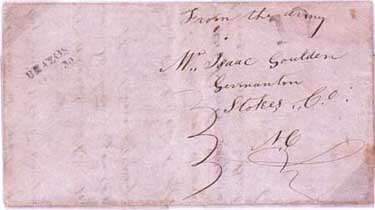 From the army
BRAZOS
Mr. Isaac Goulden
Germanton
Stokes, C.C.
N.C